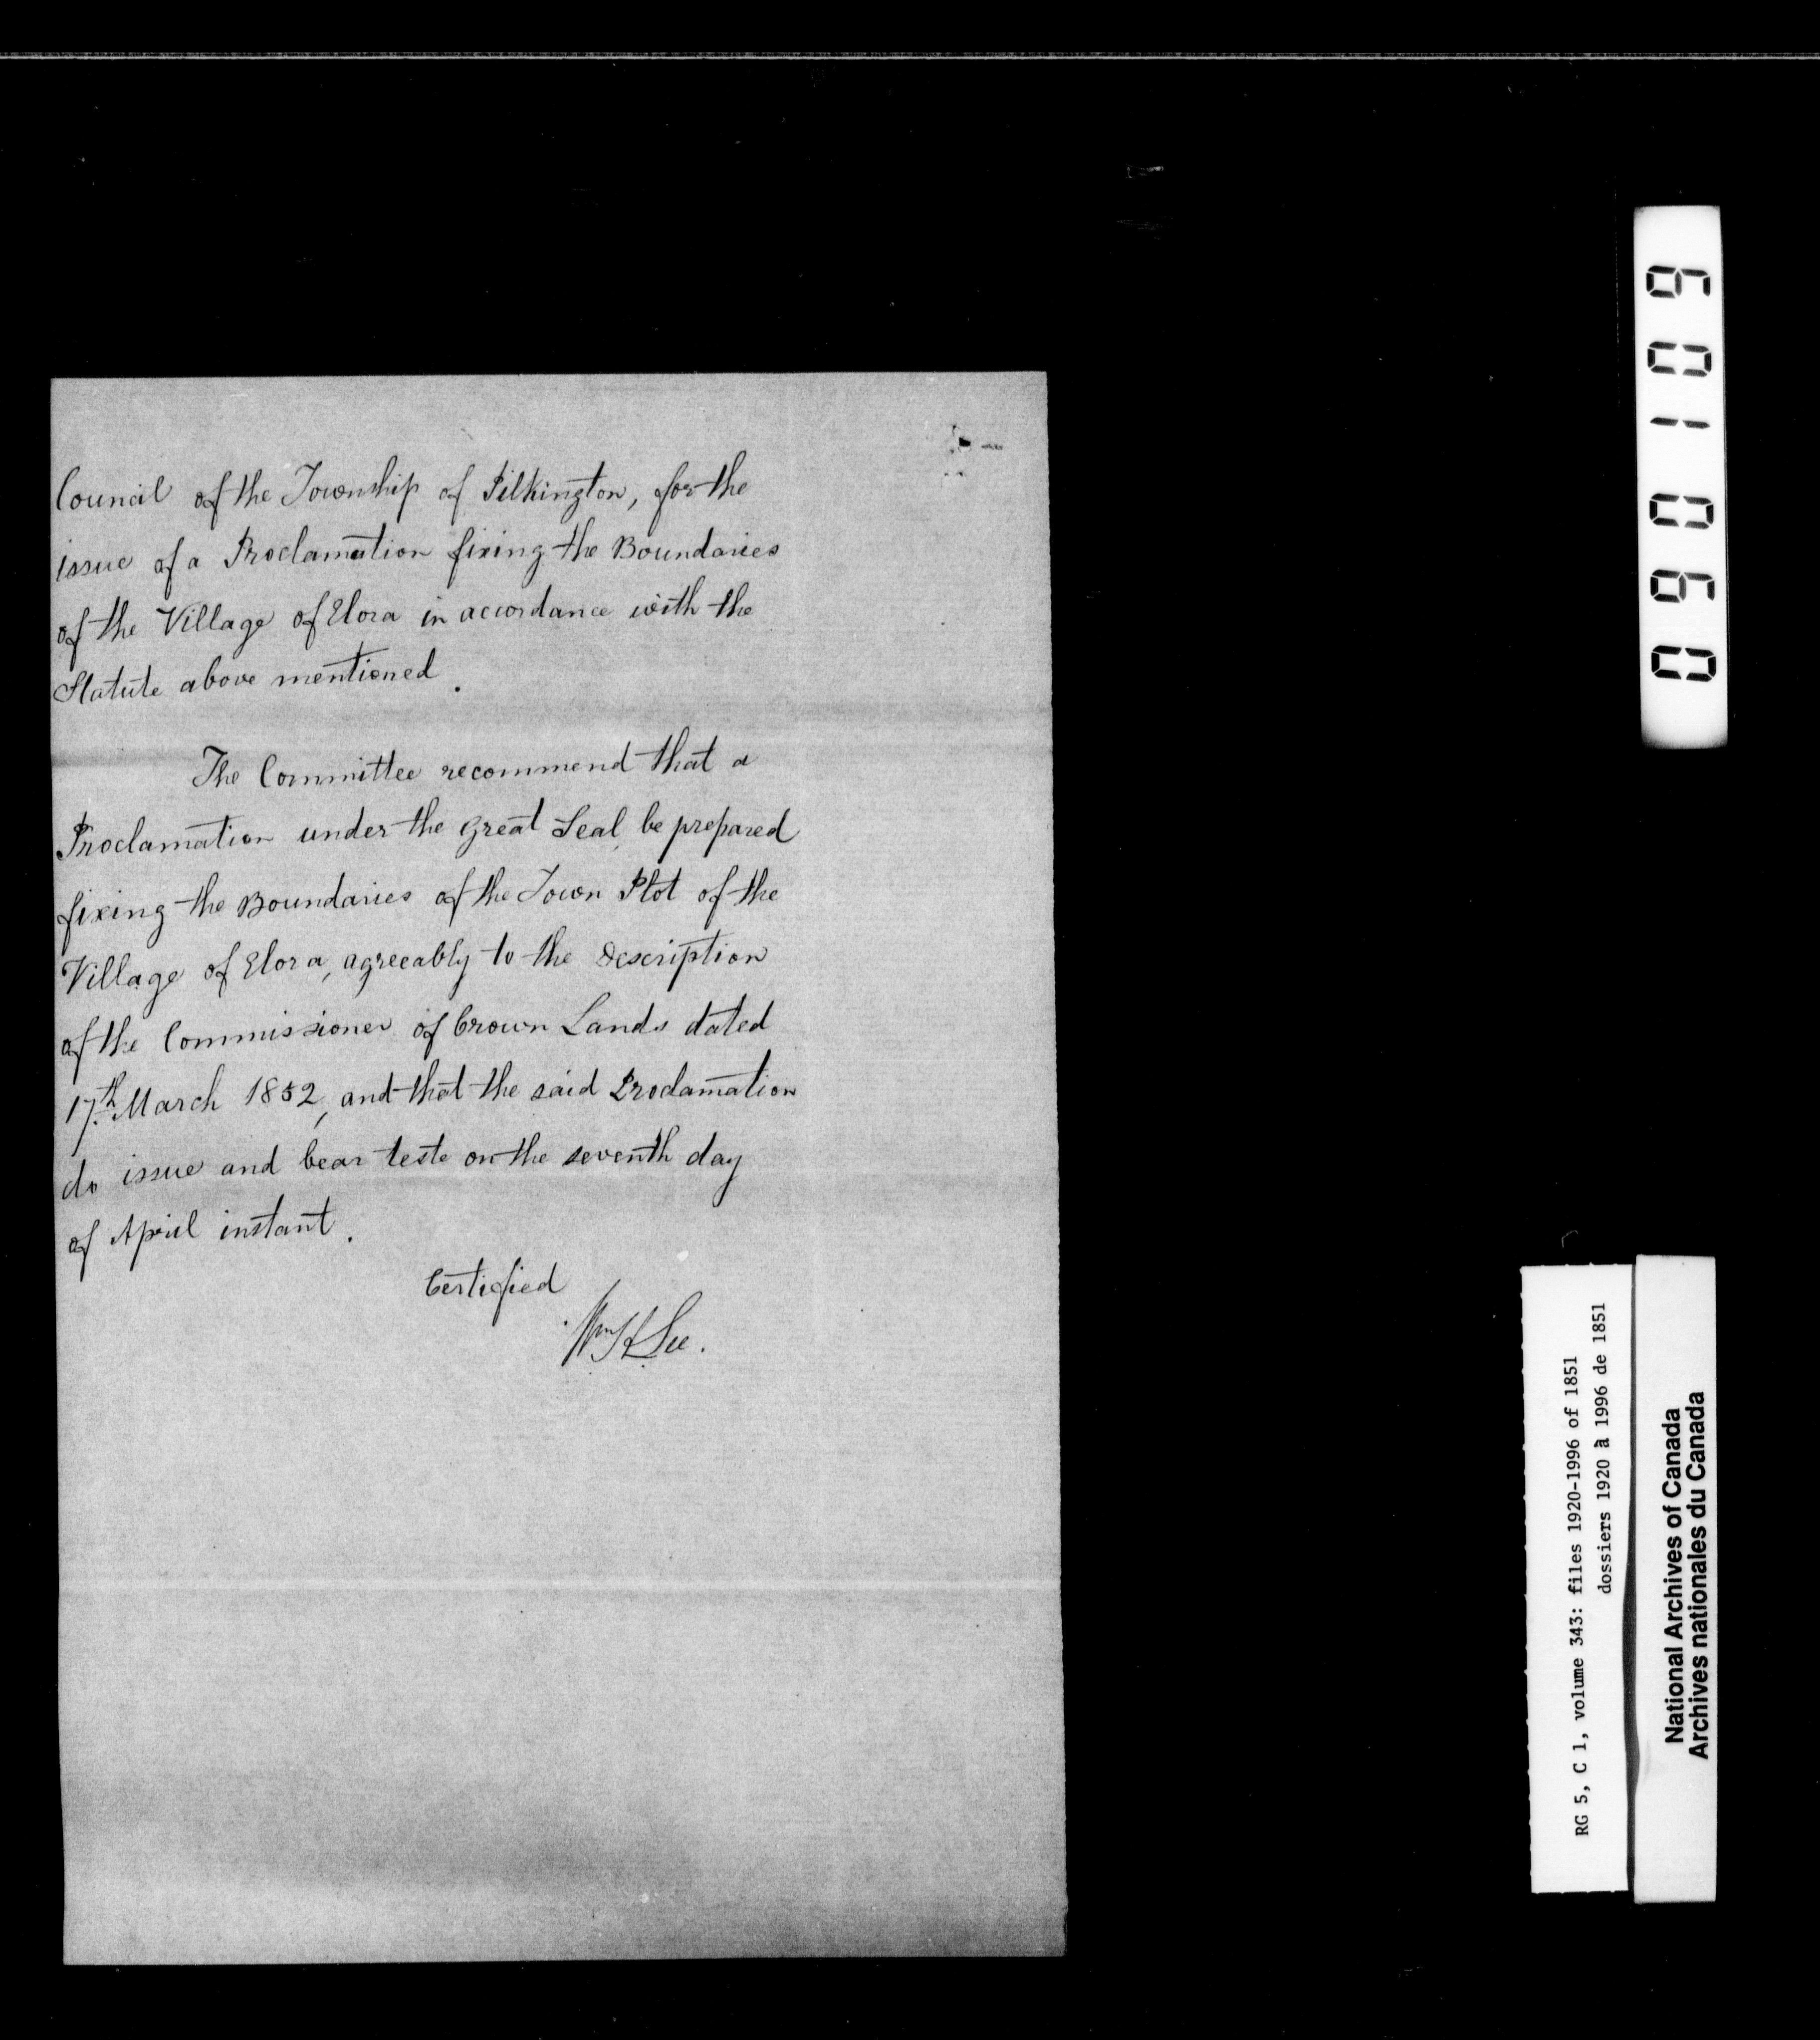 Council of the Township of Pilkington, for the
issue of a Proclamation fixing the Boundaries
of the Village of Elora in accordance with the
Statute above mentioned.
The Committee recommend that a
Proclamation under the Great Seal, be prepared
fixing the Boundaries of the Town Plot of the
Village of Elora, agreeably to the Description
of the Commissioner of Crown Lands dated
17th March 1852, and that the said Proclamation
do issue and bear teste on the seventh day
of April instant.
Certified
Wm H Lee.
090109
RG 5, C 1, volume 343: files 1920-1996 of 1851
dossiers 1920 à 1996 de 1851
National Archives of Canada
Archives nationales du Canada